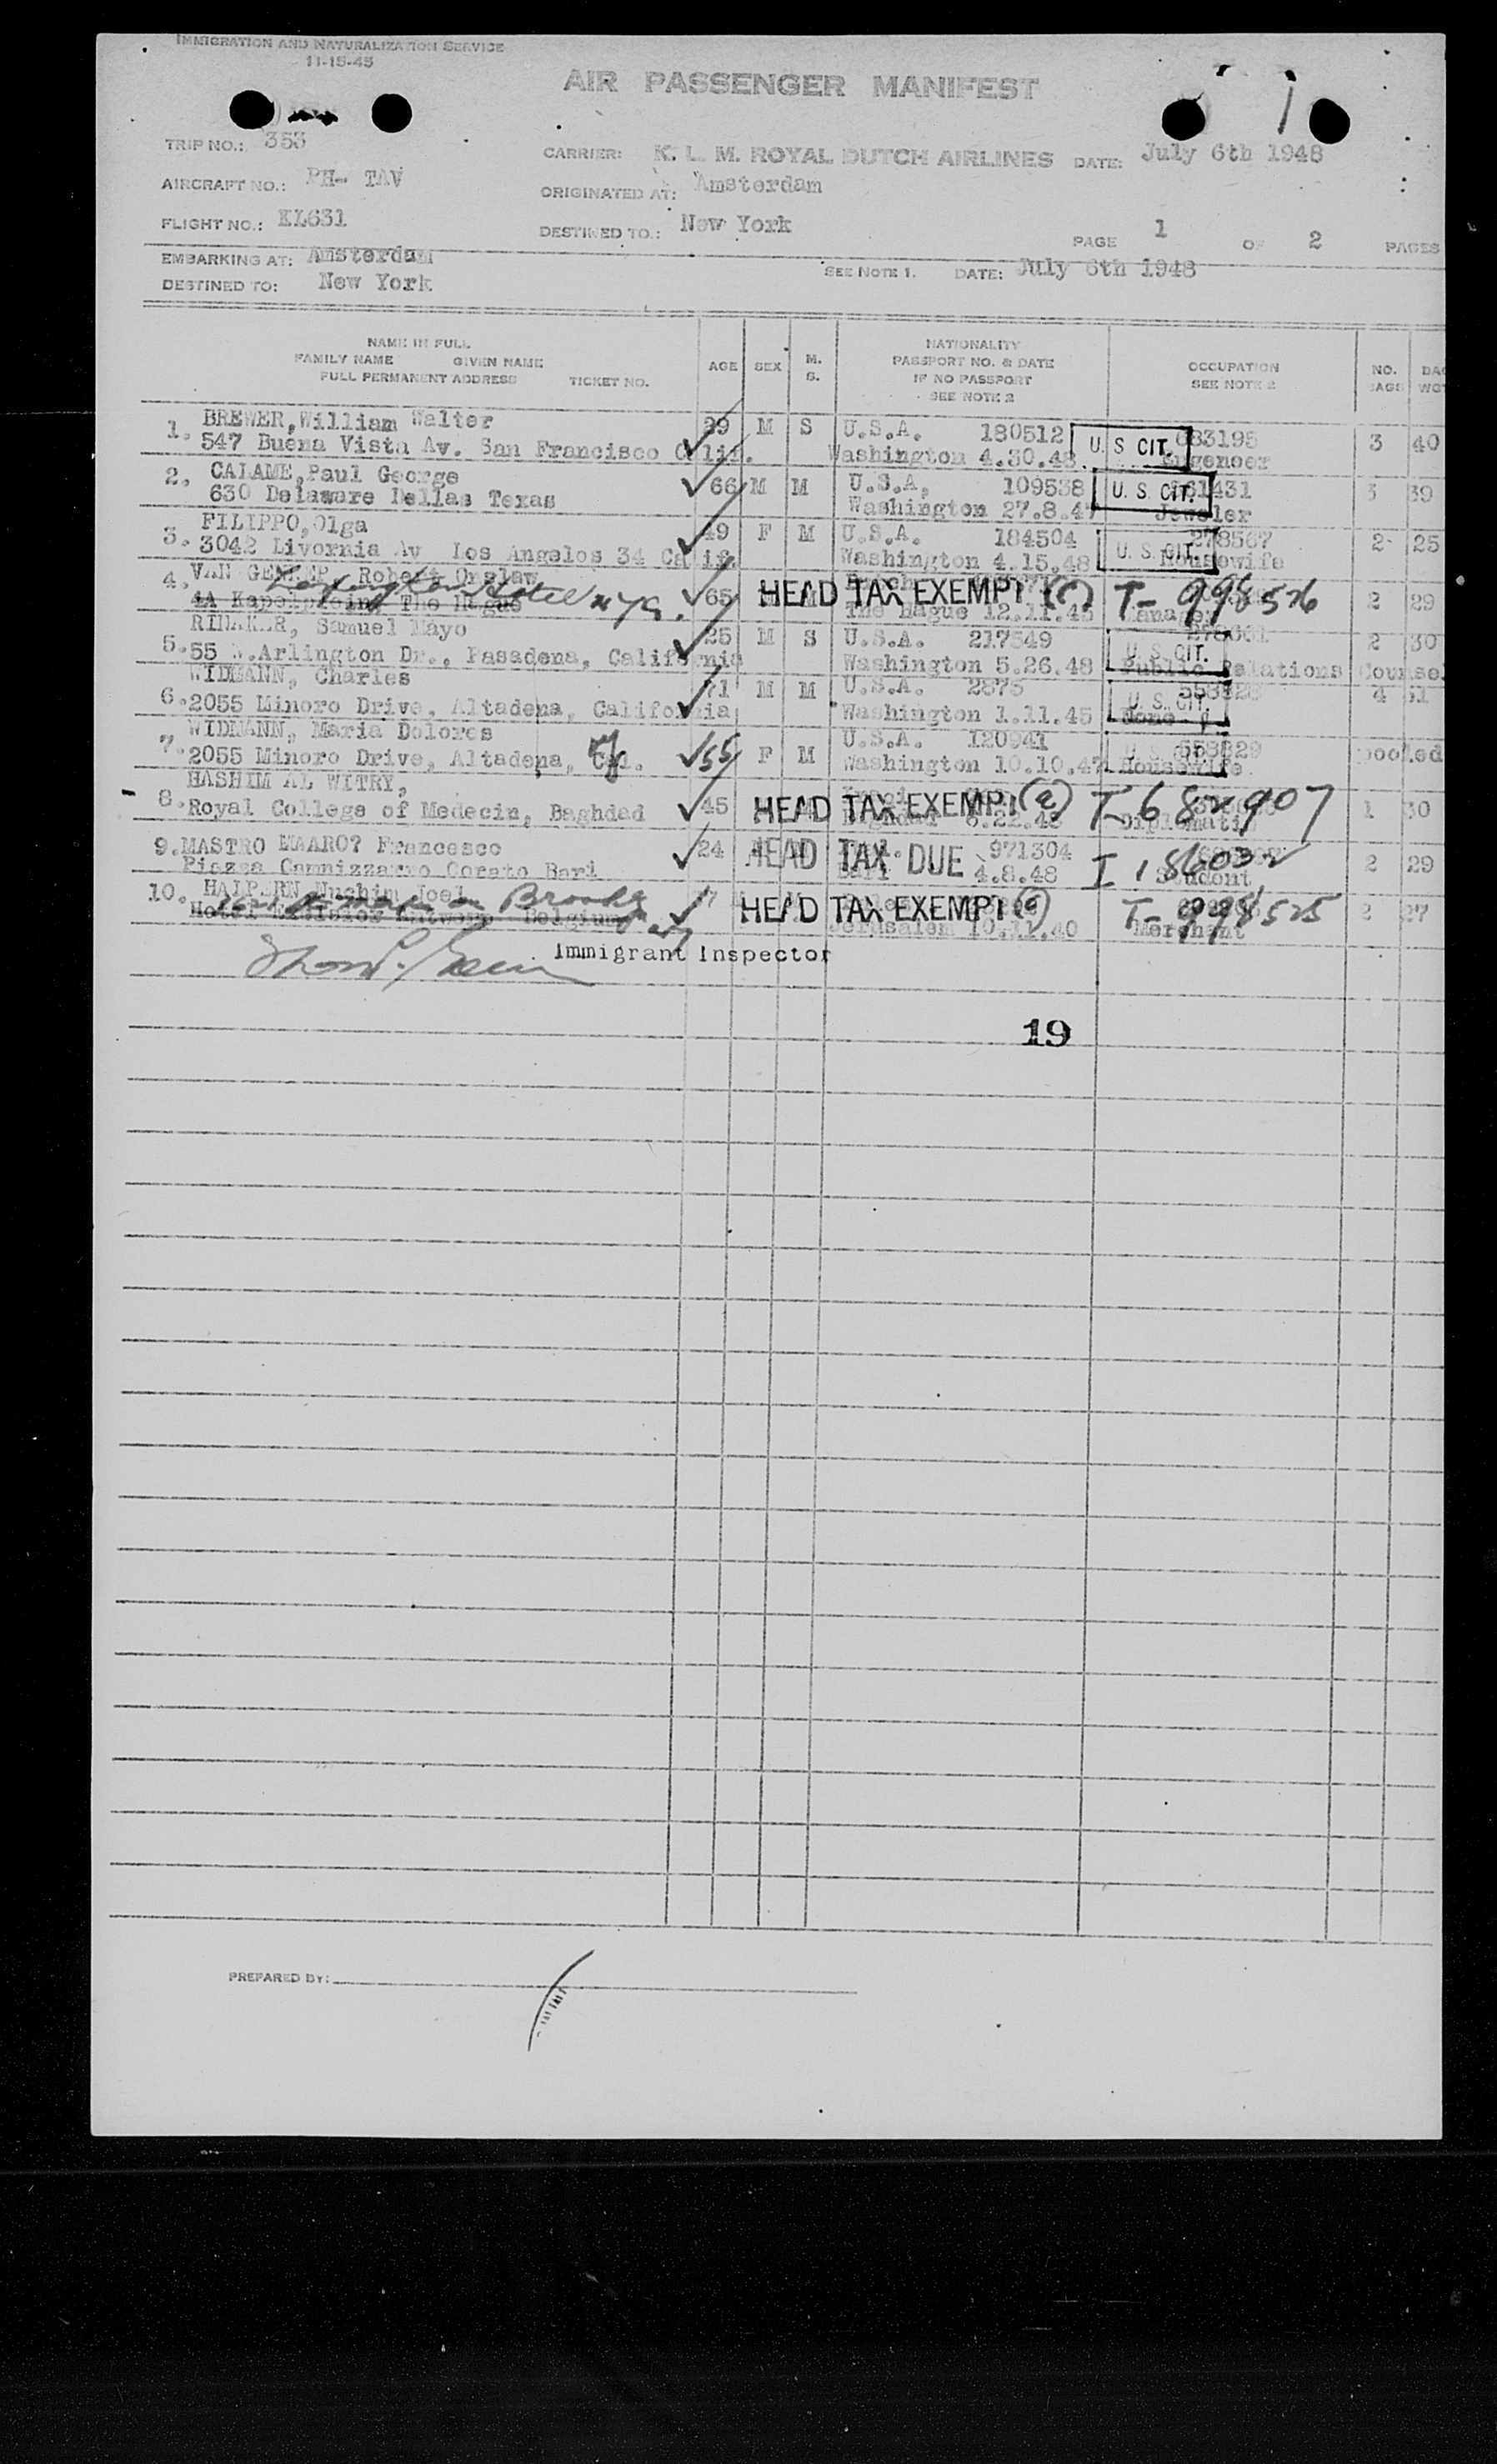 IMMIGRATION AND NATURALIZATION SERVICE
11-15-45
AIR PASSENGER MANIFEST
TRIP NO.: 353
CARRIER: K. L. M. ROYAL DUTCH AIRLINES DATE: July 6th 1948
AIRCRAFT NO.: PH- TAV
ORIGINATED AT: Amsterdam
FLIGHT NO.: KL631
DESTINED TO.: New York
PAGE 1 OF 2 PAGES
EMBARKING AT: Amsterdam
SEE NOTE 1. DATE: July 6th 1948
DESTINED TO: New York
NAME IN FULL
FAMILY NAME GIVEN NAME
FULL PERMANENT ADDRESS TICKET NO.
AGE SEX M. S.
NATIONALITY
PASSPORT NO. & DATE
IF NO PASSPORT
SEE NOTE 2
OCCUPATION
SEE NOTE 2
NO.
BAGS
BAG
WGT
1. BREWER, William Walter 29 M S U.S.A. 180512 U. S CIT. 683195 3 40
547 Buena Vista Av. San Francisco Calif. Washington 4.30.48
2. CALAME, Paul George 66 M M U.S.A. 109538 U. S. CIT. 3 39
630 Delaware Dellas Texas Washington 27.8.47 Jeweler
3. FILIPPO, Olga 49 F M U.S.A. 184504 U. S. CIT. 278567 2 25
3042 Livornia Av Los Angelos 34 Calif. Washington 4.15.48 Housewife
4. VAN Robert 65 HEAD TAX EXEMPT T- 998526 2 29
Hotel N.Y.C.
The Hague The Hague 12.11.45 Manager
5. Samuel Mayo 25 M S U.S.A. 217549 U. S. CIT. 2 30
55 W. Arlington Dr., Pasadena, California Washington 5.26.48 Public Relations Counsel
6. WIDMANN, Charles 71 M M U.S.A. 2875 U. S. CIT. 4 51
2055 Minoro Drive, Altadena, California Washington 1.11.45 None
7. WIDMANN, Maria Dolores 55 F M U.S.A. 120941 658829 pooled
2055 Minoro Drive, Altadena, Cal. Washington 10.10.47 Housewife
8. HASHIM AL WITRY, 45 HEAD TAX EXEMPT (a) T-682907 1 30
Royal College of Medecin, Baghdad 6.22.48
9. MASTRO MAARO? Francesco 24 HEAD TAX DUE 971304 2 29
Piazza Cannizzarro Corato Bari Bari 4.8.48 Student
10. HALPERN, Nuchim Joel HEAD TAX EXEMPT T-998525 2 27
Brooklyn
Hotel Belgium Jerusalem 10.11.40 Merchant
Immigrant Inspector
19
PREPARED BY: